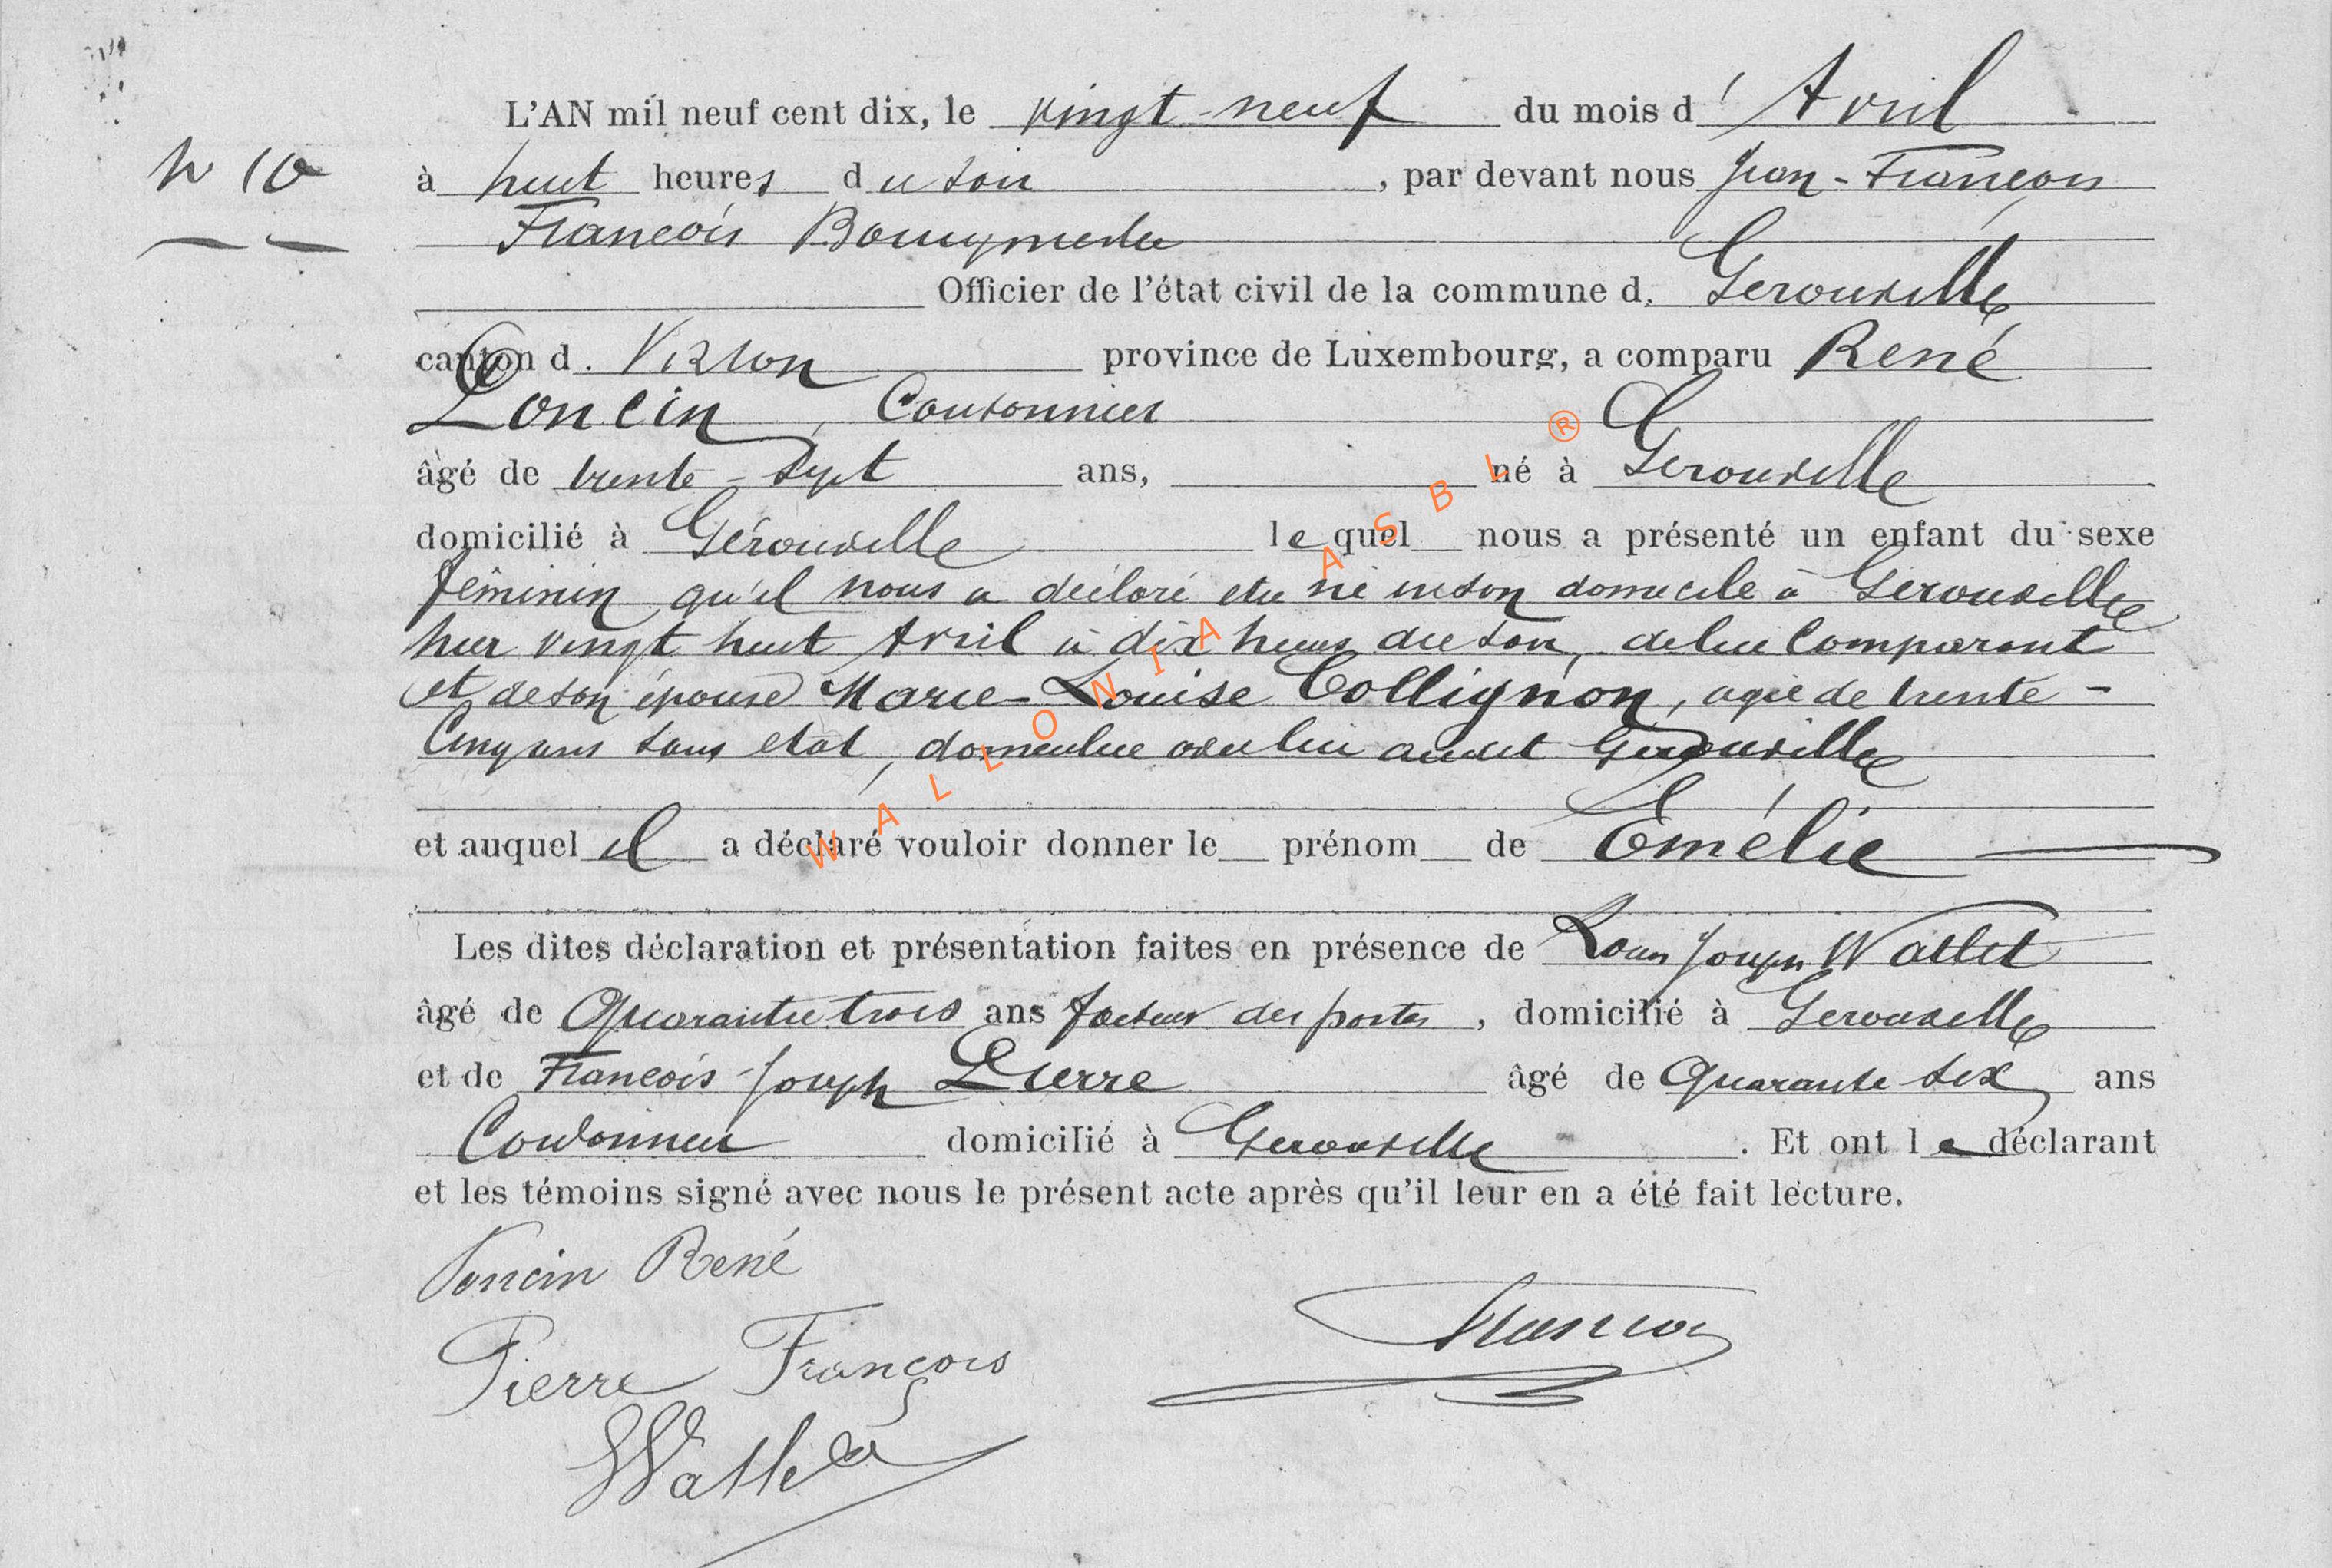 L'AN mil neuf cent dix, le vingt-neuf du mois d'Avril
N 10
à huit heures du soir, par devant nous Jean-François
François
Officier de l'état civil de la commune d. Gérouville
canton d. Virton province de Luxembourg, a comparu René
Poncin, Cordonnier
âgé de trente-sept ans, né à Gérouville
domicilié à Gérouville lequel nous a présenté un enfant du sexe
féminin qu'il nous a déclaré être né en son domicile à Gérouville
hier vingt huit Avril à dix heures du soir, de lui Comparant
et de son épouse Marie-Louise Collignon, agée de trente-
Cinq ans sans état, domiciliée avec lui audit Gérouville
et auquel il a déclaré vouloir donner le prénom de Emélie
Les dites déclaration et présentation faites en présence de Louis Joseph Wallet
âgé de Quarante trois ans facteur des postes, domicilié à Gérouville
et de François-Joseph Pierre âgé de Quarante six ans
Cordonnier domicilié à Gérouville. Et ont le déclarant
et les témoins signé avec nous le présent acte après qu'il leur en a été fait lecture.
Poncin René
François
Pierre François
WALLONIA ASBL ®